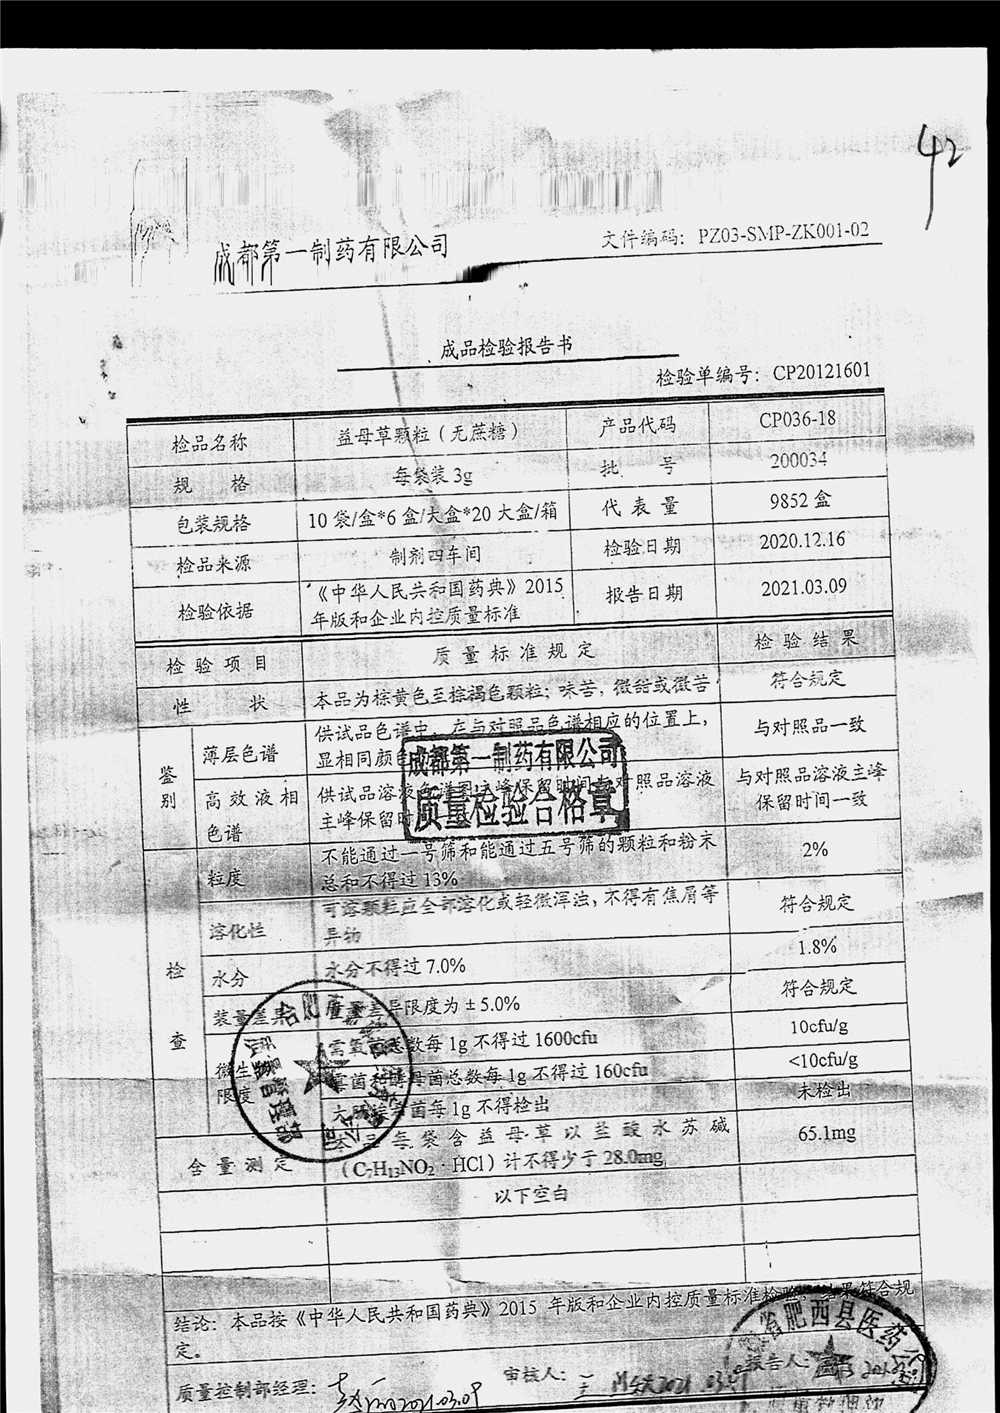 42
成都第一制药有限公司
文件编码：PZ03-SMP-ZK001-02
成品检验报告书
检验单编号：CP20121601
检品名称 益母草颗粒（无蔗糖） 产品代码 CP036-18
规 格 每袋装 3g 批 号 200034
包装规格 10 袋/盒*6 盒/大盒*20 大盒/箱 代 表 量 9852 盒
检品来源 制剂四车间 检验日期 2020.12.16
检验依据 《中华人民共和国药典》2015
年版和企业内控质量标准 报告日期 2021.03.09
检 验 项 目 质 量 标 准 规 定 检 验 结 果
性 状 本品为棕黄色至棕褐色颗粒；味苦，微甜或微苦 符合规定
鉴别
薄层色谱 供试品色谱中，在与对照品色谱相应的位置上，
显相同颜色 与对照品一致
高效液相
色谱 供试品溶液色谱图主峰保留时间与对照品溶液
主峰保留时 一致 与对照品溶液主峰
保留时间一致
成都第一制药有限公司
质量检验合格章
检 查
粒度 不能通过一号筛和能通过五号筛的颗粒和粉末
总和不得过 13% 2%
溶化性 可溶颗粒应全部溶化或轻微浑浊，不得有焦屑等
异物 符合规定
水分 水分不得过 7.0% 1.8%
装量差异 装量差异限度为 ±5.0% 符合规定
微生
限度
需氧菌总数每 1g 不得过 1600cfu 10cfu/g
霉菌和酵母菌总数每 1g 不得过 160cfu <10cfu/g
大肠埃希菌每 1g 不得检出 未检出
含 量 测 定 本品每袋含益母草以盐酸水苏碱
（C₇H₁₃NO₂·HCl）计不得少于 28.0mg 65.1mg
以下空白
结论：本品按《中华人民共和国药典》2015 年版和企业内控质量标准检验，结果符合规
定。
质量控制部经理： 2021.03.09
审核人： 2021.03.09
报告人：
省肥西县医药